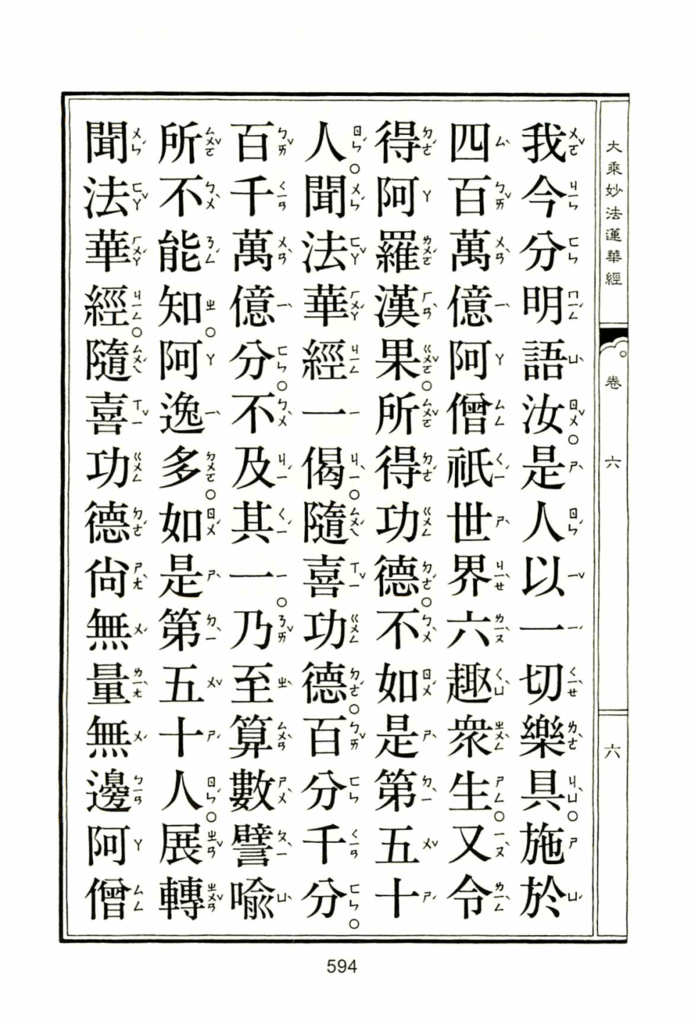 大乘妙法蓮華經
卷六
六
我今分明語汝。是人以一切樂具。施於
四百萬億阿僧祇世界六趣眾生。又令
得阿羅漢果。所得功德。不如是第五十
人。聞法華經一偈。隨喜功德。百分千分。
百千萬億分。不及其一。乃至算數譬喻
所不能知。阿逸多。如是第五十人。展轉
聞法華經。隨喜功德尚無量無邊阿僧
594